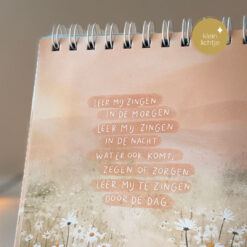 klein
lichtje
LEER MIJ ZINGEN
IN DE MORGEN
LEER MIJ ZINGEN
IN DE NACHT
WAT ER OOK KOMT,
ZEGEN OF ZORGEN
LEER MIJ TE ZINGEN
DOOR DE DAG